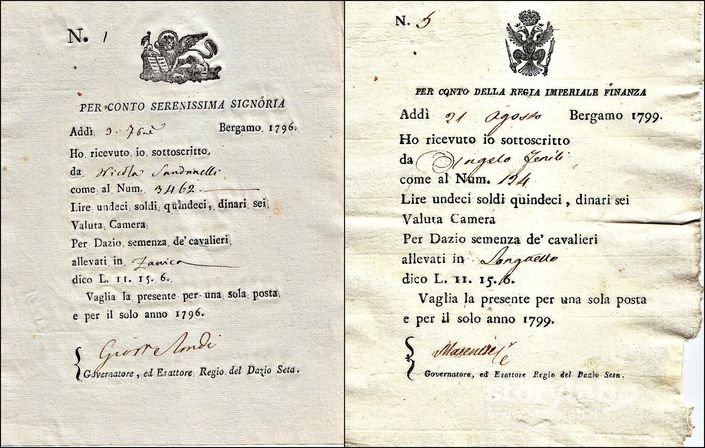 N. 1
PER CONTO SERENISSIMA SIGNORIA
Addì 3. 7bre Bergamo 1796.
Ho ricevuto io sottoscritto
da Nicola
come al Num. 3462
Lire undeci, soldi quindeci, dinari sei
Valuta Camera
Per Dazio semenza de' cavalieri
allevati in Zanica
dico L. 11. 15. 6.
Vaglia la presente per una sola posta
e per il solo anno 1796.
Governatore, ed Esattore Regio del Dazio Seta.
N. 5
PER CONTO DELLA REGIA IMPERIALE FINANZA
Addì 21 Agosto Bergamo 1799.
Ho ricevuto io sottoscritto
da Angelo
come al Num. 194
Lire undeci soldi quindeci, dinari sei
Valuta Camera
Per Dazio semenza de' cavalieri
allevati in Longuelo
dico L. 11. 15. 6.
Vaglia la presente per una sola posta
e per il solo anno 1799.
Governatore, ed Esattore Regio del Dazio Seta.